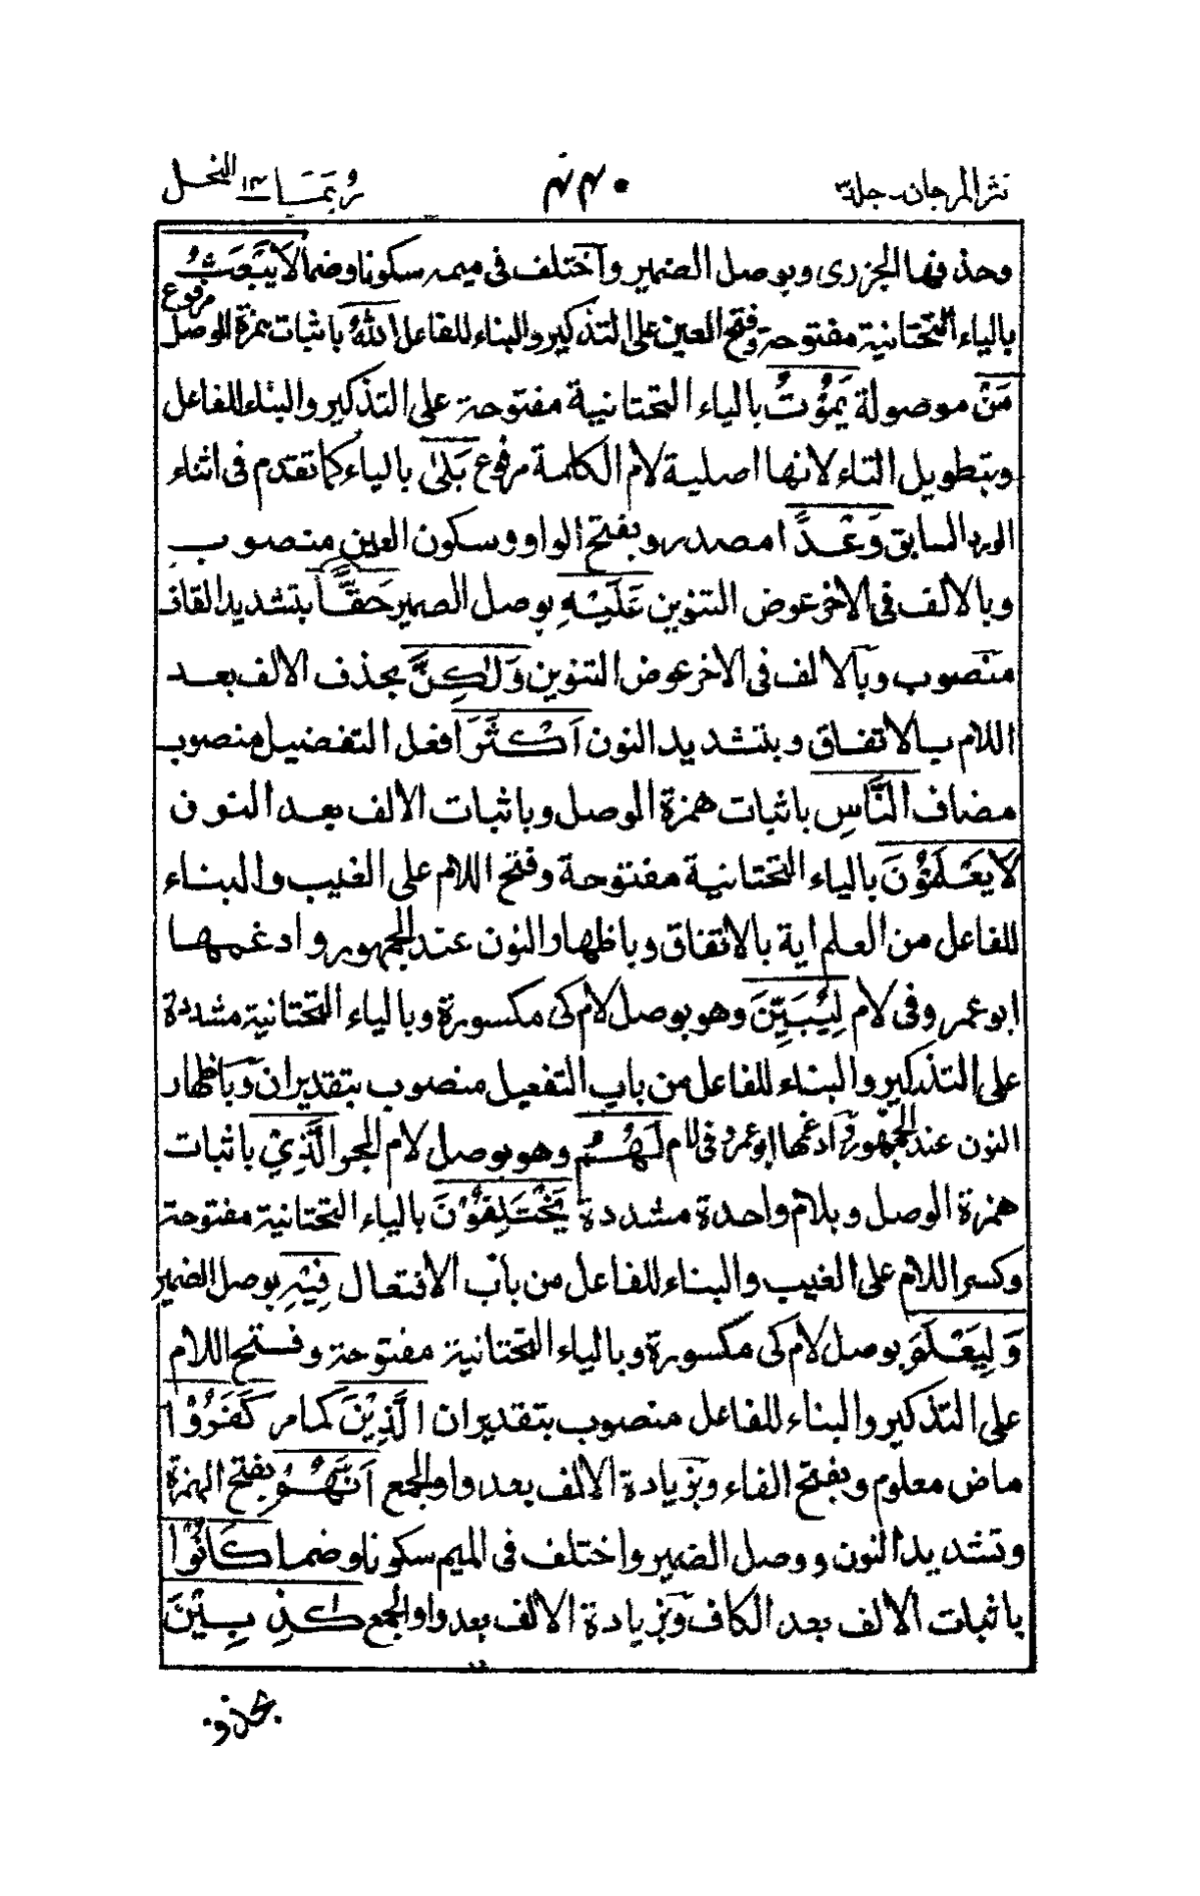 نثر المرجان جلد٣
٤٤٠
ربما ١٤ النحل
وحذفها الجزرى وبوصل الضمير واختلف فى ميمه سكونا وضما لَا يَبْعَثُ
بالياء التحتانية مفتوحة وفتح العين على التذكير والبناء للفاعل مرفوع اللهُ باثبات همزة الوصل
مَنْ موصولة يَمُوْتُ بالياء التحتانية مفتوحة على التذكير والبناء للفاعل
وبتطويل التاء لانها اصلية لام الكلمة مرفوع بَلىٰ بالياء كما تقدم فى اثناء
الورد السابق وَعْدًا مصدر وبفتح الواو وسكون العين منصوب
وبالالف فى الاخر عوض التنوين عَلَيْهِ بوصل الضمير حَقًّا بتشديد القاف
منصوب وبالالف فى الاخر عوض التنوين وَلٰكِنَّ بحذف الالف بعد
اللام بالاتفاق وبتشديد النون اَكْثَرَ افعل التفضيل منصوب
مضاف النَّاسِ باثبات همزة الوصل وباثبات الالف بعد النون
لَا يَعْلَمُوْنَ بالياء التحتانية مفتوحة وفتح اللام على الغيب والبناء
للفاعل من العلم اية بالاتفاق وباظهار النون عند الجمهور وادغمها
ابو عمرو فى لام لِيُبَيِّنَ وهو بوصل لام كى مكسورة وبالياء التحتانية مشددة
على التذكير والبناء للفاعل من باب التفعيل منصوب بتقدير ان وباظهار
النون عند الجمهور وادغمها ابو عمرو فى لام لَهُمُ وهو بوصل لام الجر الَّذِيْ باثبات
همزة الوصل وبلام واحدة مشددة يَخْتَلِفُوْنَ بالياء التحتانية مفتوحة
وكسر اللام على الغيب والبناء للفاعل من باب الافتعال فِيْهِ بوصل الضمير
وَلِيَعْلَمَ بوصل لام كى مكسورة وبالياء التحتانية مفتوحة وفتح اللام
على التذكير والبناء للفاعل منصوب بتقدير ان الَّذِيْنَ كما مر كَفَرُوْا
ماض معلوم وبفتح الفاء وبزيادة الالف بعد واو الجمع اَنَّهُمْ بفتح الهمزة
وتشديد النون ووصل الضمير واختلف فى الميم سكونا وضما كَانُوْا
باثبات الالف بعد الكاف وبزيادة الالف بعد واو الجمع كٰذِبِيْنَ
بحذف